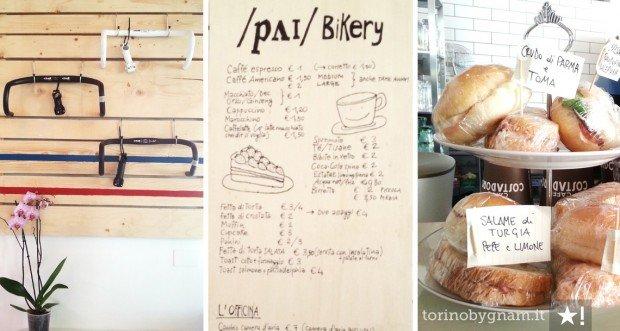 /pAI/ BiKery
Caffè espresso € 1 → corretto € 1,50
Caffè Americano € 1,50 MEDIUM
€ 2 LARGE
Macchiato/Dec
Orzo/Ginseng
Cappuccino € 1,20
Marocchino € 1,50
€ 1,50
Spremuta € 2
Tè/Tisane € 2
Bibite in vetro € 2
Coca-Cola € 2
€ 2
Birretta € 2 PICCOLA
€ 3,50 MEDIA
Fetta di torta € 3/4
Fetta di crostata € 2 → due assaggi € 4
Muffin € 2
Cupcake € 3
Panini € 2/3
Fetta di Torta SALATA € 3,50 (servita con insalatina)
Toast cotto e formaggio € 3
Toast salmone e philadelphia € 4
L'OFFICINA
CRUDO di PARMA
e
TOMA
SALAME di
TURGIA
PEPE e LIMONE
COLTADOR
torinobygnam.it